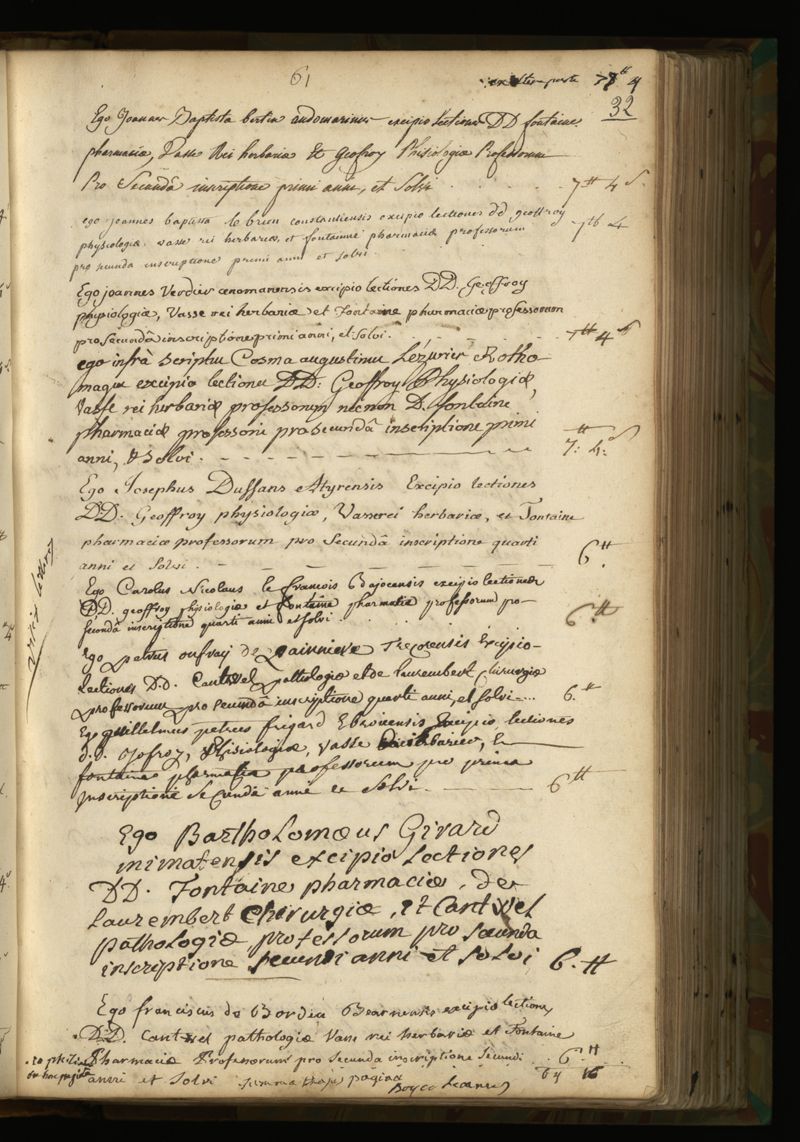 61
ex altera parte 78 ʰ 4
32
Ego Joannes Baptista bertin audomarinus excipio lectiones DD fontaine
pharmaciæ, Vasse Rei herbariæ Et Geofroy Phisiologiæ Professorum
Pro Secundâ inscriptione primi anni, et Solvi . . . 7 ʰ 4 s.
ego joannes baptista le brun constantiensis excipio lectiones dd geoffroy
physiologiæ, vasse rei herbariæ, et fontaine pharmaciæ professorum
pro secunda inscriptione primi anni et solvi. 7 ʰ 4
Ego joannes Verdier cenomanensis excipio lectiones DD. Geoffroy
physiologiæ, Vasse rei herbariæ, et Fontaine pharmaciæ professorum
pro secundâ inscriptione primi anni, et Solvi. . . . 7 ʰ 4 s
ego infrà Scriptus Cosma augustinus Lézurier Rotho-
magus excipio lectiones DD: Geoffroy Physiologiæ,
Vasse rei herbariæ professorum nec non D. fontaine
pharmaciæ professoris pro secundâ inscriptione primi
anni, & Solvi. - - - - - 7: ʰ 4: s
Ego Josephus Dussans Atyrensis Excipio lectiones
DD. Geoffroy physiologiæ, Vasse rei herbariæ, et Fontaine
pharmaciæ professorum pro Secundâ inscriptione quarti
anni et Solvi. - - - - - 6 ʰ.
Ego Carolus Nicolaus le francois Bajocensis excipio lectiones
DD. geoffroy physiologiæ et fontaine pharmatiæ professorum pro
secundâ inscriptione quarti anni et solvi . . . . 6 ʰ
Ego petrus onfroy de Excipio-
Lectiones D.D. Cantwel pathologiæ et de laurembert Chirurgiæ
professorum pro secundâ inscriptione quarti anni, et solvi ... 6. ʰ
Ego guillelmus petrus frigard Ebroicensis Excipio lectiones
d.d. Jofroy, Phisiologiæ, vasse Rei herbariæ, Et
fontaine pharmatiæ professorum pro prima
Inscriptione Secundâ anni et Solvi. - - - 6 ʰ
Ego Bartholomæus Girard
mimatensis excipio Lectiones
DD. Fontaine pharmaciæ, de
Laurembert chirurgiæ, et Cantwel
pathologiæ professorum pro secunda
inscriptione secundi anni et solvi 6. ʰ
Ego franciscus de Bordeu Bearnensis excipio lectiones
D.D. Cantwel pathologiæ Vass rei herbariæ et Fontaine
Pharmaciæ Professorum pro secunda inscriptione secundi . . 6. ʰ
anni et Solvi summa hujus paginæ 64 16